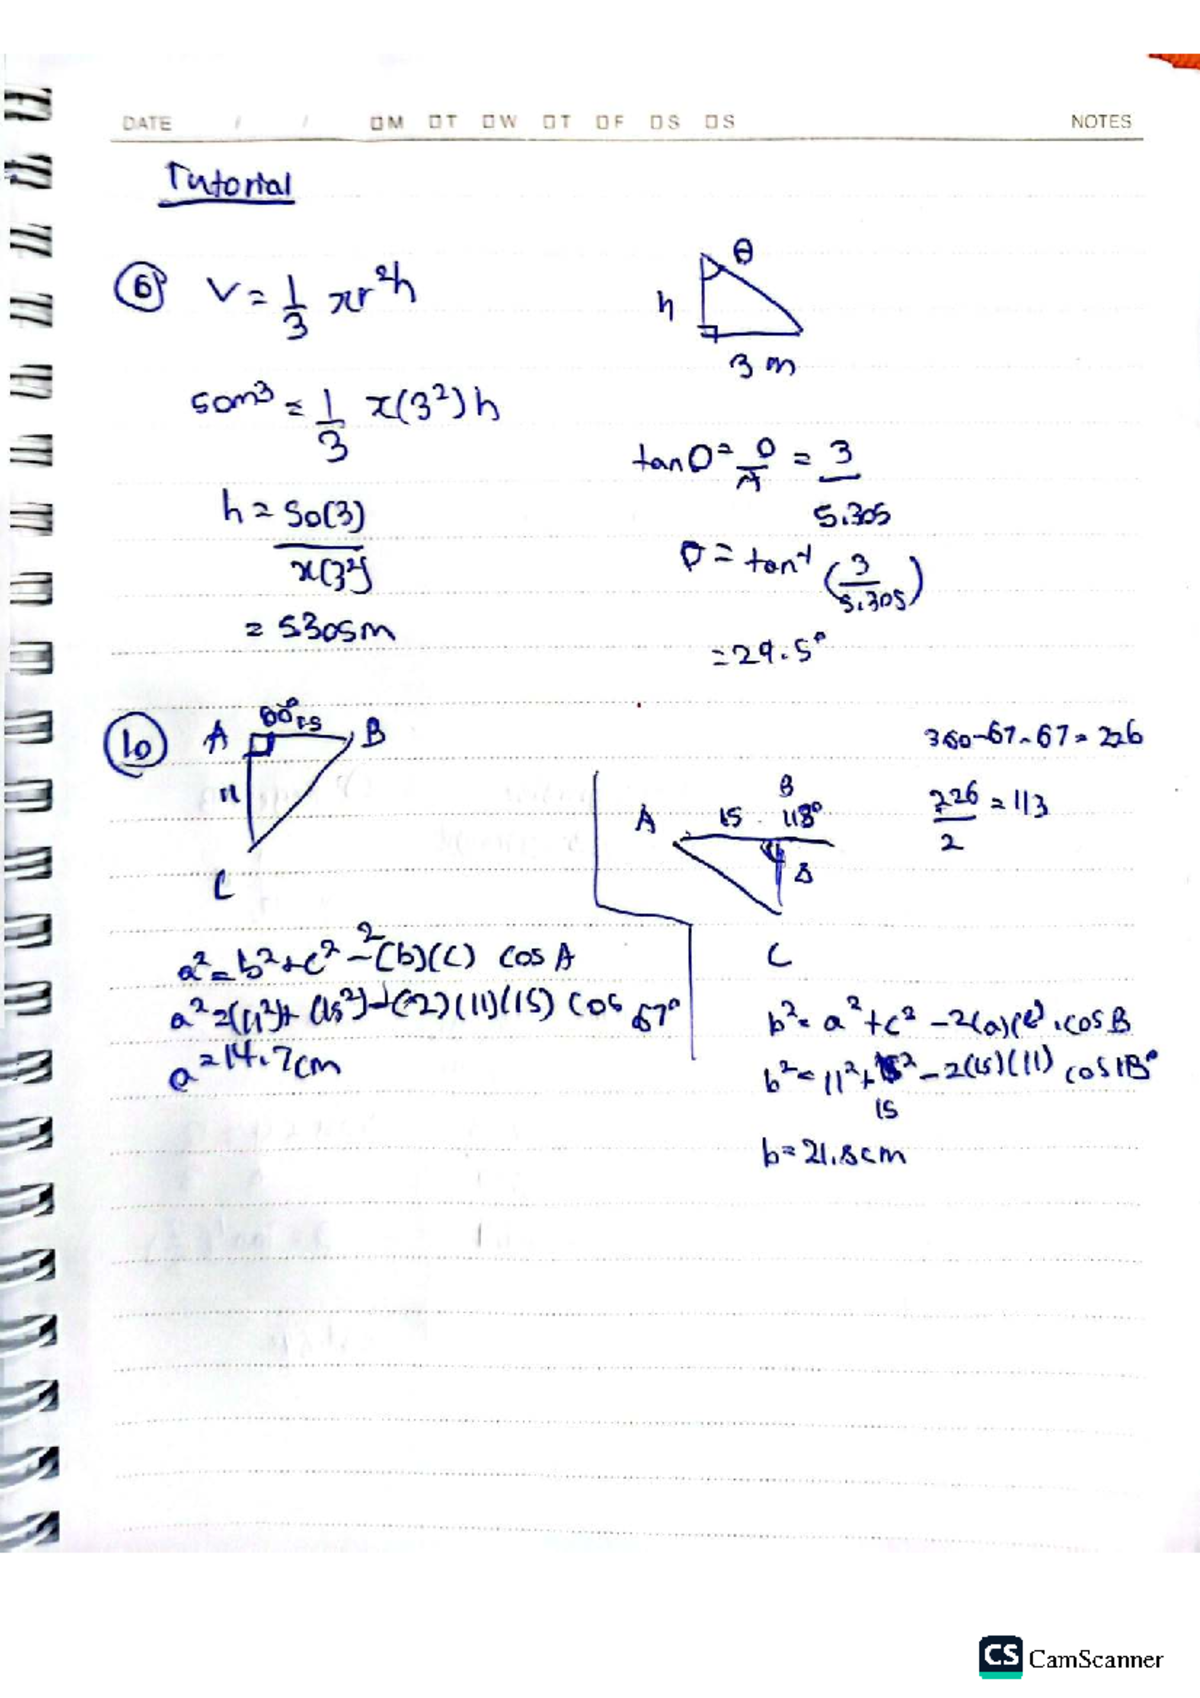 DATE / / M T W T F S S NOTES
Tutorial
6 V = 1/3 πr²h
θ
h
3 m
50m³ = 1/3 π(3²)h
h = 50(3)
π(3²)
= 5.305m
tanθ = O/A = 3
5.305
θ = tan⁻¹ (3/5.305)
= 29.5°
10 A B
11
C
a² = b² + c² - 2(b)(c) cos A
a² = (11²) + (15²) + (-2)(11)(15) cos 67°
a = 14.7cm
360-67-67 = 226
226/2 = 113
B
A 15
C
b² = a² + c² - 2(a)(c) . cos B
b² = 11² + ² - 2(15)(11) cos 113°
15
b = 21.8cm
CS CamScanner